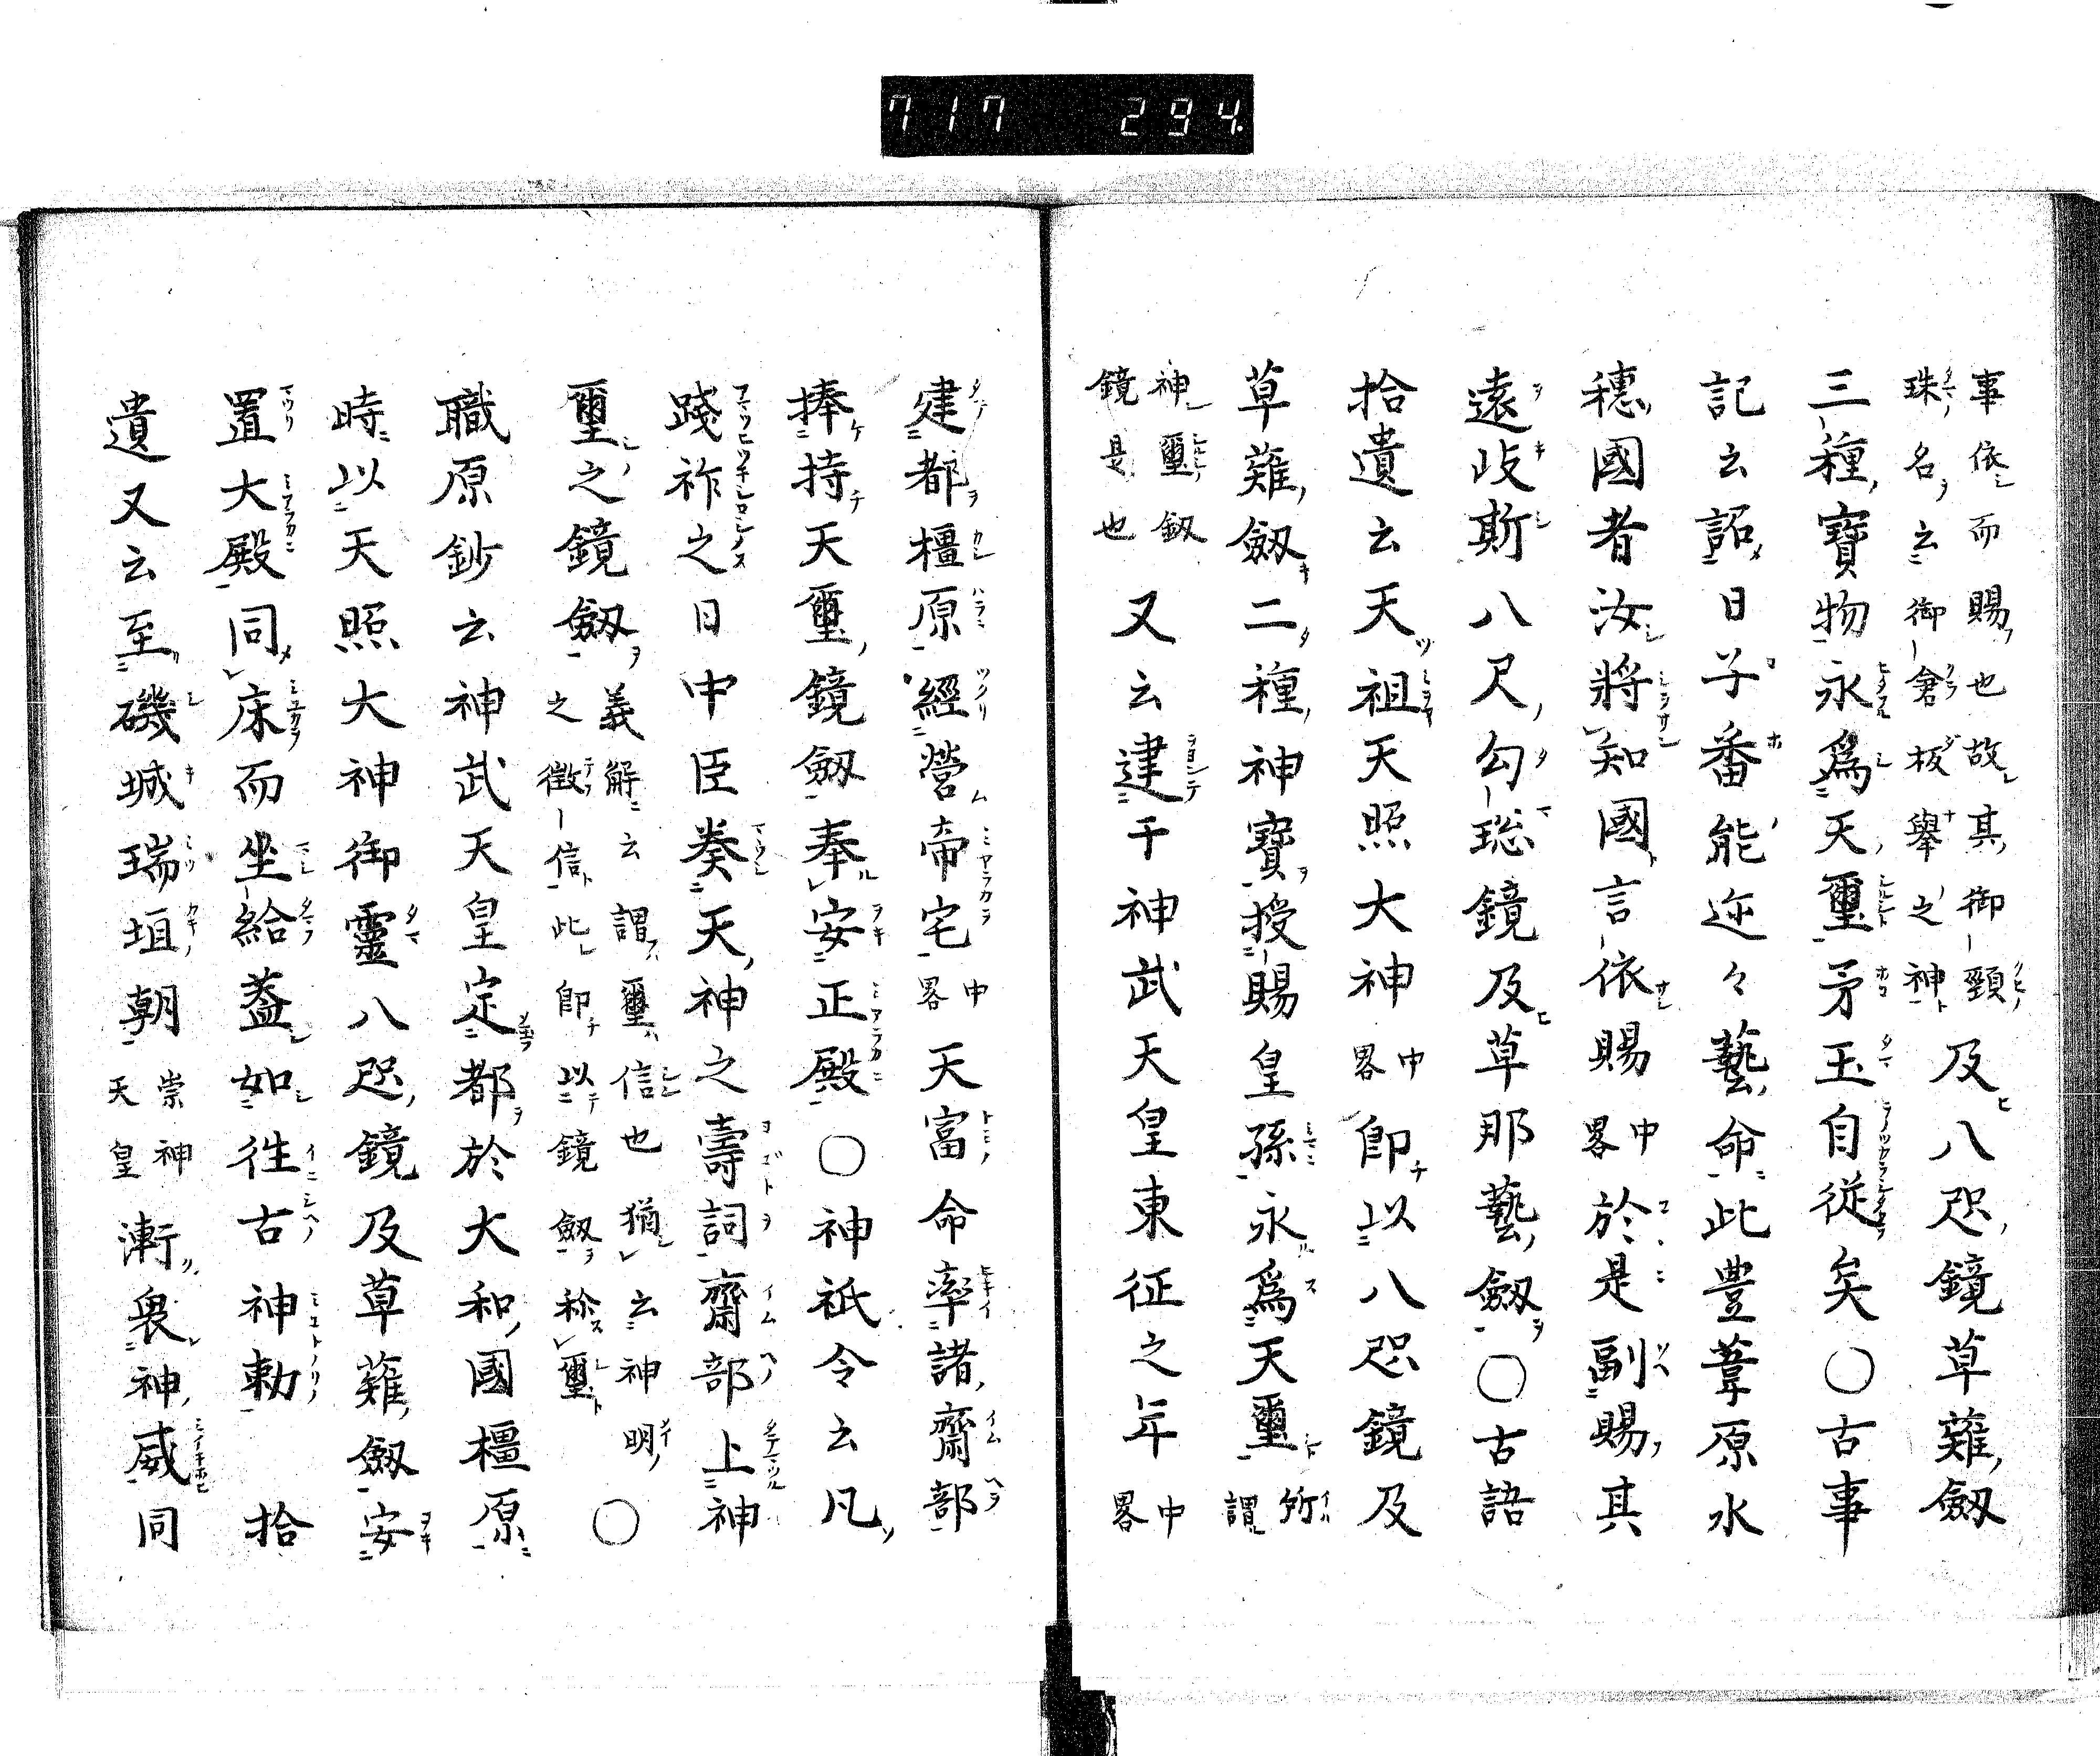 717 294
事依而賜也故其御頸
珠名云御倉板擧之神
及八咫鏡草薙劔
三種寶物永爲天璽矛玉自從矣○古事
記云詔日子番能迩々藝命此豊葦原水
穂國者汝將知國言依賜中畧於是副賜其
遠岐斯八尺勾璁鏡及草那藝劔○古語
拾遺云天祖天照大神中畧即以八咫鏡及
草薙劔二種神寶授賜皇孫永爲天璽所謂
神璽釼
鏡是也
又云逮于神武天皇東征之年中畧
建都橿原經營帝宅中畧天富命率諸齋部
捧持天璽鏡劔奉安正殿○神祇令云凡
踐祚之日中臣奏天神之壽詞齋部上神
璽之鏡劔
義解云謂璽信也猶云神明
之徴信此即以鏡劔称璽
○
職原鈔云神武天皇定都於大和國橿原
時以天照大神御靈八咫鏡及草薙劔安
置大殿同床而坐給蓋如徃古神勅 拾
遺又云至磯城瑞垣朝崇神天皇漸畏神威同